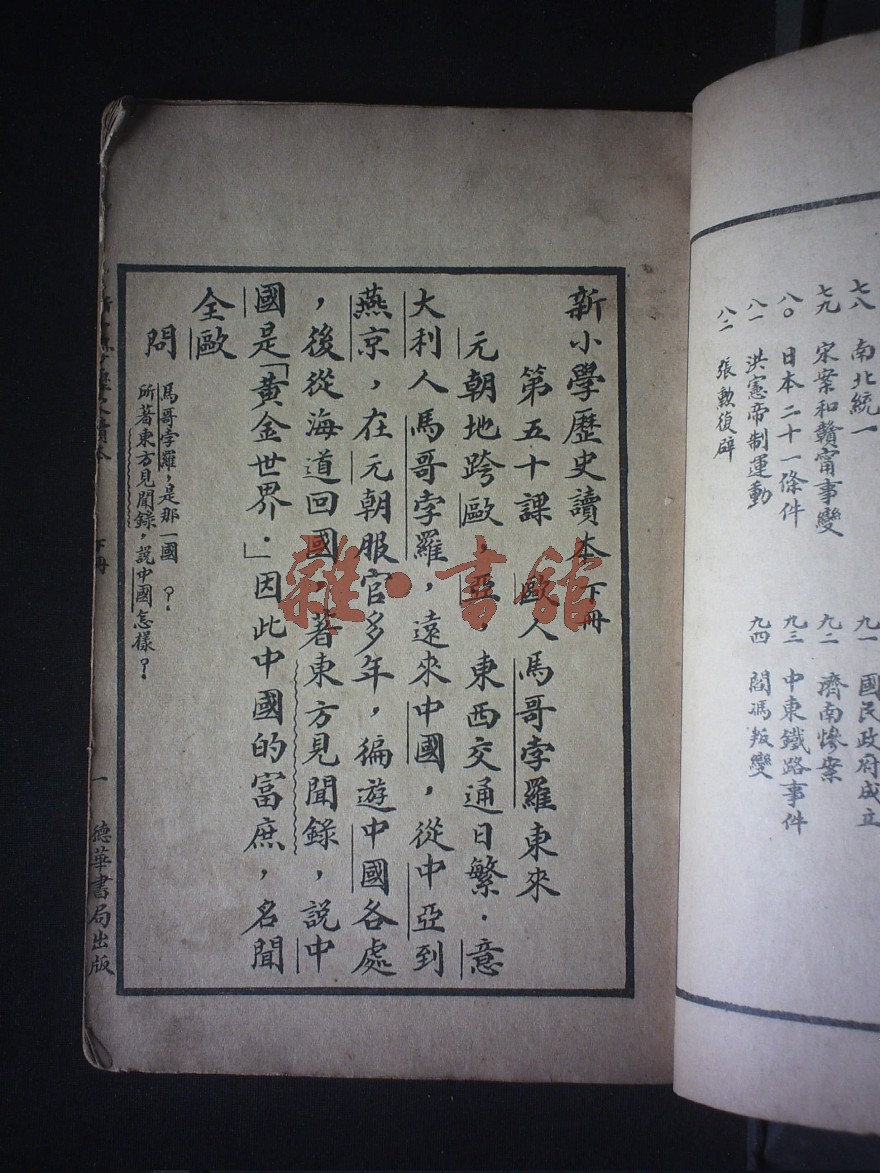 七八 南北統一
七九 宋案和贛甯事變
八〇 日本二十一條件
八一 洪憲帝制運動
八二 張勳復辟
九一 國民政府成立
九二 濟南慘案
九三 中東鐵路事件
九四 閻馮叛變
新小學歷史讀本下冊
第五十課 歐人馬哥孛羅東來
元朝地跨歐,亞,東西交通日繁.意
大利人馬哥孛羅,遠來中國,從中亞到
燕京,在元朝服官多年,徧遊中國各處
,後從海道回國.著東方見聞錄,說中
國是「黃金世界.」因此中國的富庶,名聞
全歐
問
馬哥孛羅,是那一國 ?.
所著東方見聞錄,說中國怎樣?
讀本 下冊
一 德華書局出版
雜·書館